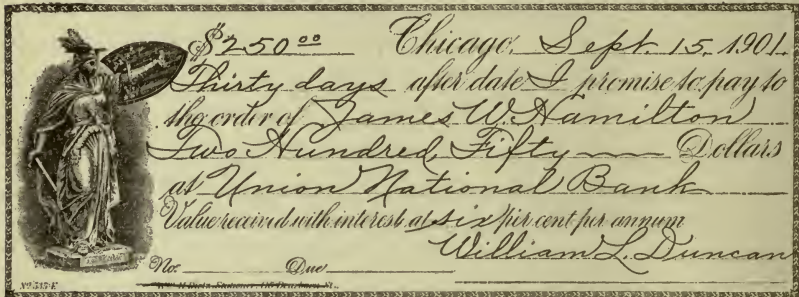 $250.00 Chicago, Sept. 15, 1901.
Thirty days after date I promise to pay to
the order of James W. Hamilton
Two Hundred, Fifty Dollars
at Union National Bank
Value received with interest at six per cent per annum
William L. Duncan
No. Due